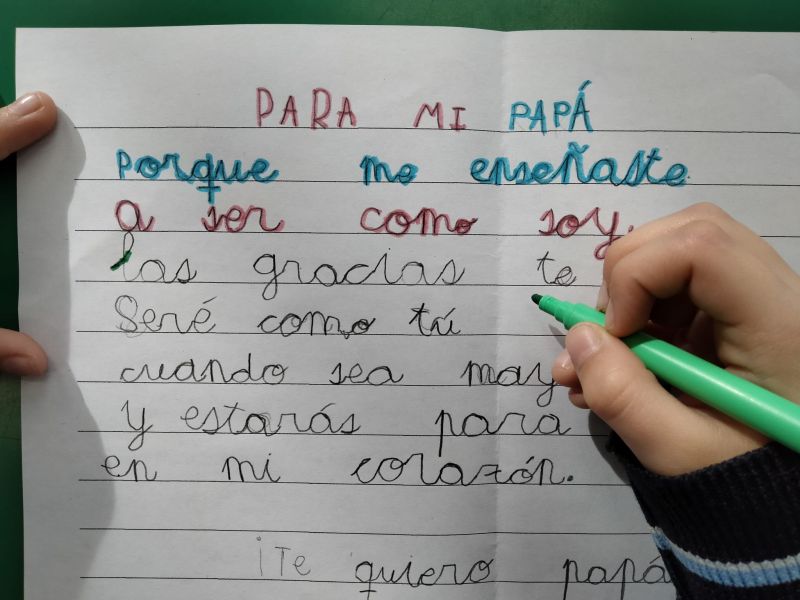 PARA MI PAPÁ
Porque me enseñaste
a ser como soy.
las gracias te
Seré como tú
cuando sea may
y estarás para
en mi corazón.
¡Te quiero papá